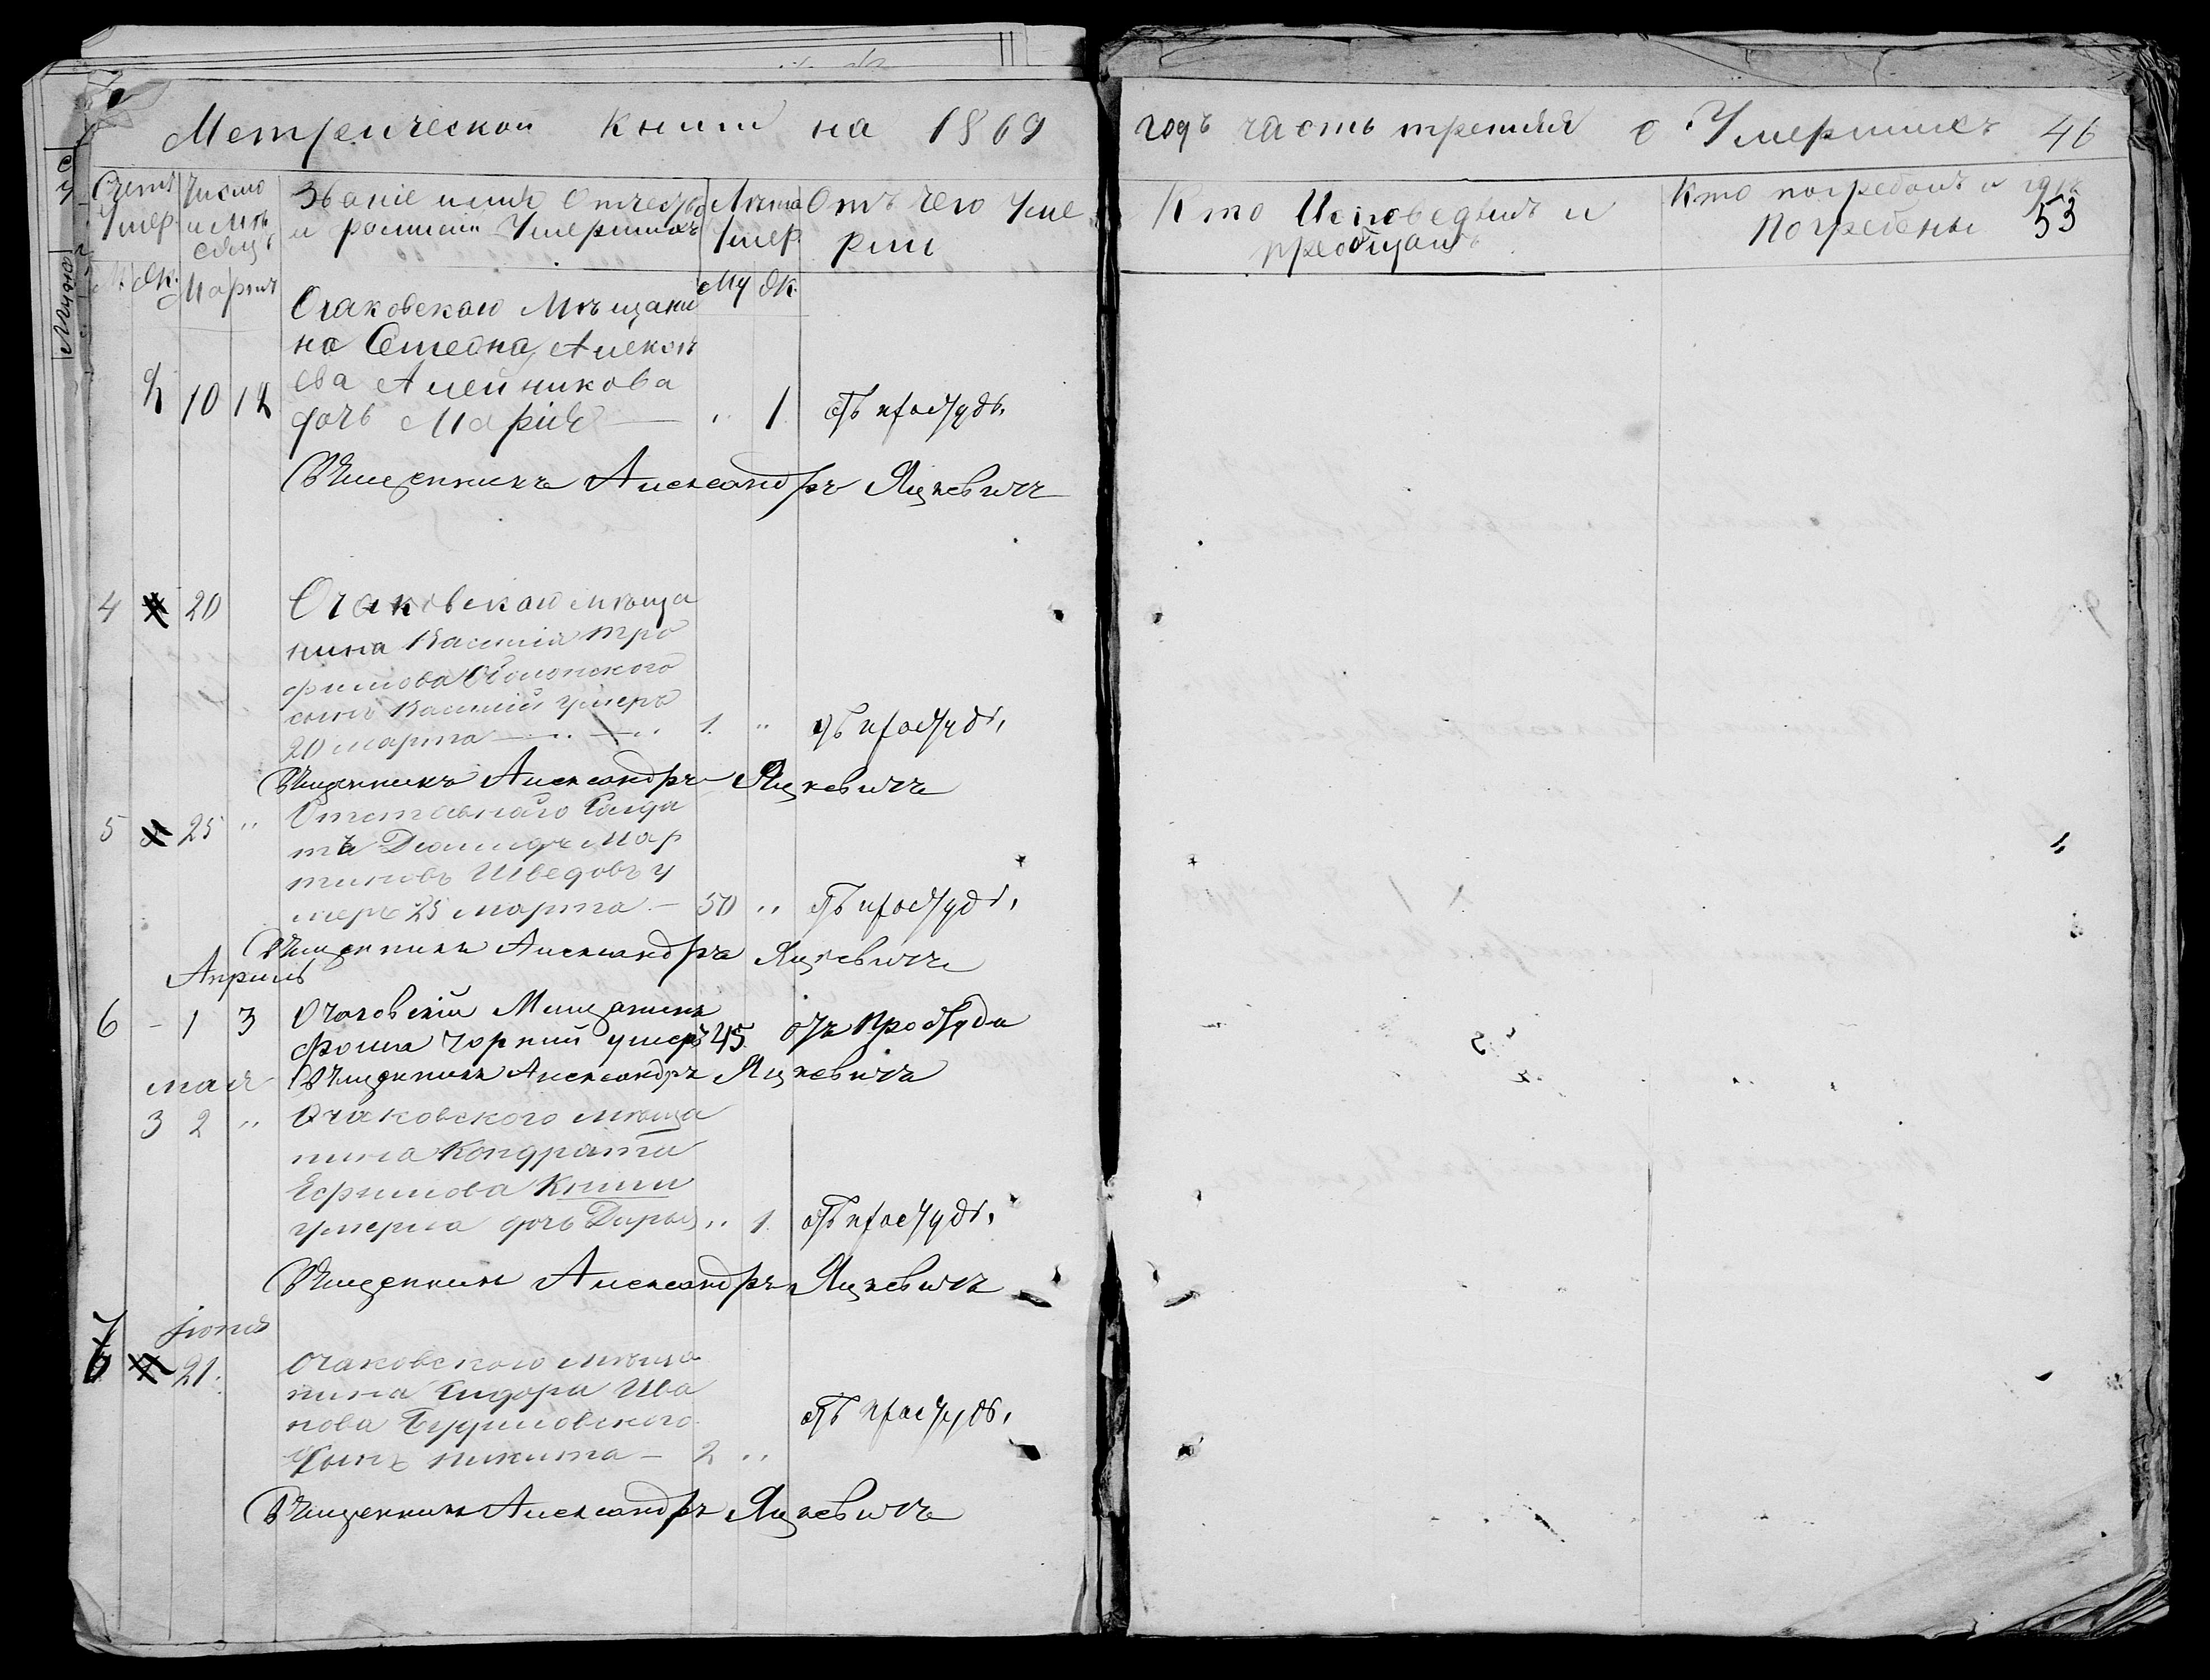 Метрической книги на 1869
годъ часть третия о Умершихъ 46
Счетъ Умер
Число и Мѣсяцъ
Званіе имя Отчество и фамилии Умершихъ
Лѣта Умер
Отъ чего Умерли
Кто Исповедывъ и преобщалъ
Кто погребалъ и гдѣ Погребены 53
М. Ж. Мартъ Му Ж.
Очаковскаго Мѣщани
на Семеона Алексѣ
ева Алейникова
2 10 12 дочь Марія — „ 1 отъ простуды.
Священникъ Александръ Яцкевичъ
4 20 Очаковскаго мѣща
нина Василія Тро
фимова Оболонского
сынъ Василий умеръ
20 марта — 1. „ отъ простуды,
Священникъ Александръ Яцкевичъ
5 25 „ Отставнаго Солда
тъ Демидъ Мар
тиновъ Шведовъ у
меръ 25 марта — 50 „ отъ простуды,
Священникъ Александръ Яцкевичъ
Апрель
6 - 1 3 Очаковскій Мещанинъ
Фома Чорний умеръ 45 отъ Простуди
мая Священникъ Александръ Яцкевичъ
3 2 „ Очаковского мѣща
нина Кондрати
Ефимова Книги
умерла дочь Дарья „ 1. отъ простуды,
Священникъ Александръ Яцкевичъ
7 Іюня
6 21. Очаковского мѣща
нина Сидора Ива
нова
Сынъ никита — 2 „ отъ простуды,
Священникъ Александръ Яцкевичъ